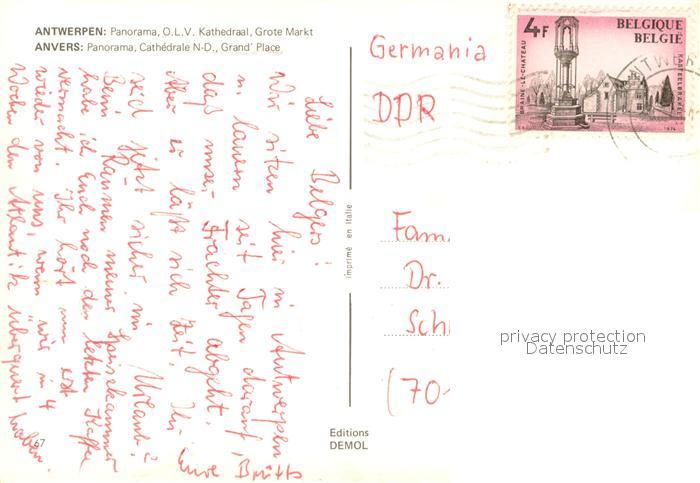 ANTWERPEN: Panorama, O.L.V. Kathedraal, Grote Markt
ANVERS: Panorama, Cathédrale N-D., Grand' Place
Liebe Belgers!
Wir sitzen hier in Antwerpen
u. lauern seit Tagen darauf,
daß unser Frachter abgeht.
Aber er läßt sich Zeit. Ihr
seid jetzt sicher im Urlaub?
Beim Räumen meiner Speisekammer
habe ich Euch noch den letzten Kaffee
vermacht. Ihr hört nun erst
wieder von uns, wenn wir in 4
Wochen den Atlantik überquert haben.
Eure
67
imprimé en Italie
Editions
DEMOL
4F
BELGIQUE
BELGIË
BRAINE-LE-CHATEAU
KASTEELBRAKEL
1974
ANTWE
Germania
DDR
Fam.
Dr.
Sch
(70-
privacy protection
Datenschutz